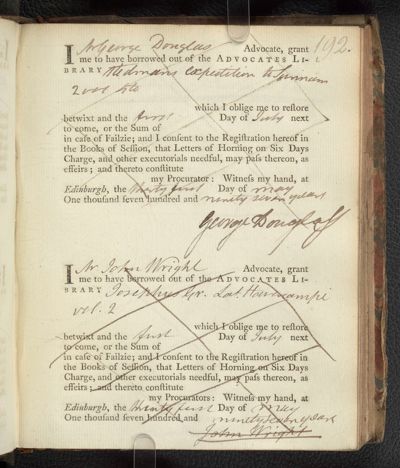 192.
I Mr George Douglas Advocate, grant
me to have borrowed out of the ADVOCATES LI-
BRARY Stedmans expedition to Surinam
2 vol 4to
which I oblige me to reſtore
betwixt and the first Day of July next
to come, or the Sum of
in caſe of Failzie; and I conſent to the Regiſtration hereof in
the Books of Seſſion, that Letters of Horning on Six Days
Charge, and other executorials needful, may paſs thereon, as
effeirs; and thereto conſtitute
my Procurator: Witneſs my hand, at
Edinburgh, the thirty first Day of may
One thouſand ſeven hundred and ninety seven years
George Douglas
I Mr. John Wright Advocate, grant
me to have borrowed out of the ADVOCATES LI-
BRARY Josephus Gr. Lat. Havercampi
vol. 2
which I oblige me to reſtore
betwixt and the first Day of July next
to come, or the Sum of
in caſe of Failzie; and I conſent to the Regiſtration hereof in
the Books of Seſſion, that Letters of Horning on Six Days
Charge, and other executorials needful, may paſs thereon, as
effeirs; and thereto conſtitute
my Procurators: Witneſs my hand, at
Edinburgh, the thirty first Day of may
One thouſand ſeven hundred and ninety seven years
John Wright